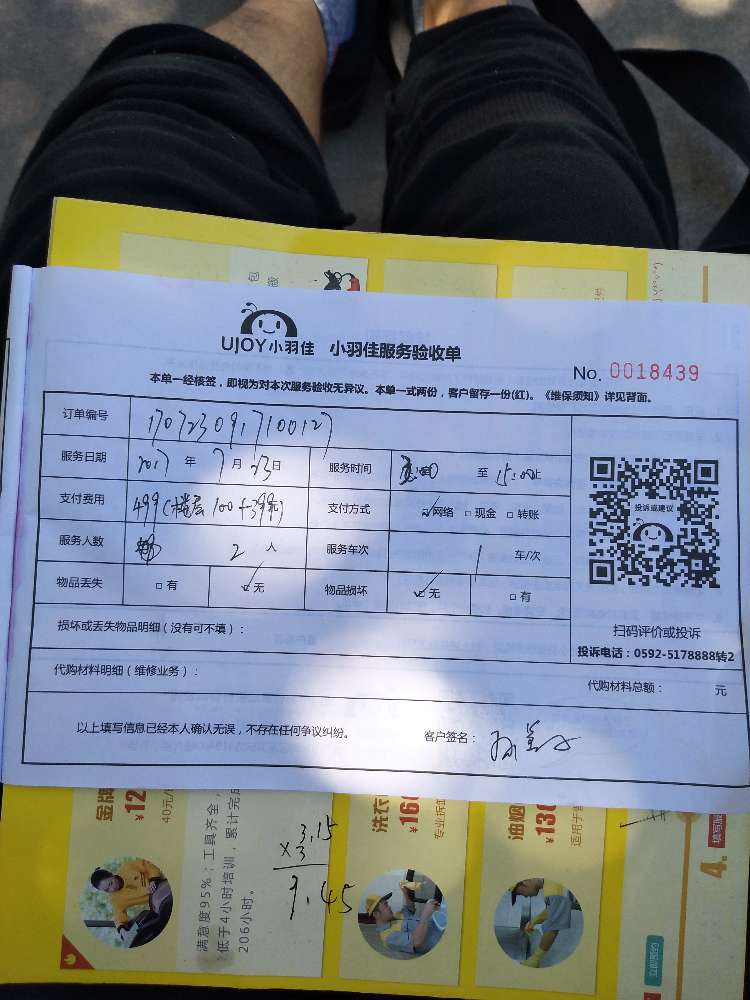 UJOY小羽佳 小羽佳服务验收单
No. 0018439
本单一经核签，即视为对本次服务验收无异议。本单一式两份，客户留存一份(红)。《维保须知》详见背面。
订单编号 1707230917100127
服务日期 2017 年 7 月 23 日 服务时间 至 15:00止
支付费用 499(楼层100+399元) 支付方式 ☑网络 □现金 □转账
服务人数 2 人 服务车次 1 车/次
物品丢失 □有 ☑无 物品损坏 ☑无 □有
投诉或建议
扫码评价或投诉
投诉电话：0592-5178888转2
损坏或丢失物品明细（没有可不填）：
代购材料明细（维修业务）： 代购材料总额： 元
以上填写信息已经本人确认无误，不存在任何争议纠纷。 客户签名：
金牌
¥12
40元/
满意度95%；工具齐全，
低于4小时培训，累计完成
206小时。
3.15
×3
9.45
洗衣
¥160
专业拆
油烟
¥130
适用于
4.
填写服
立即预约